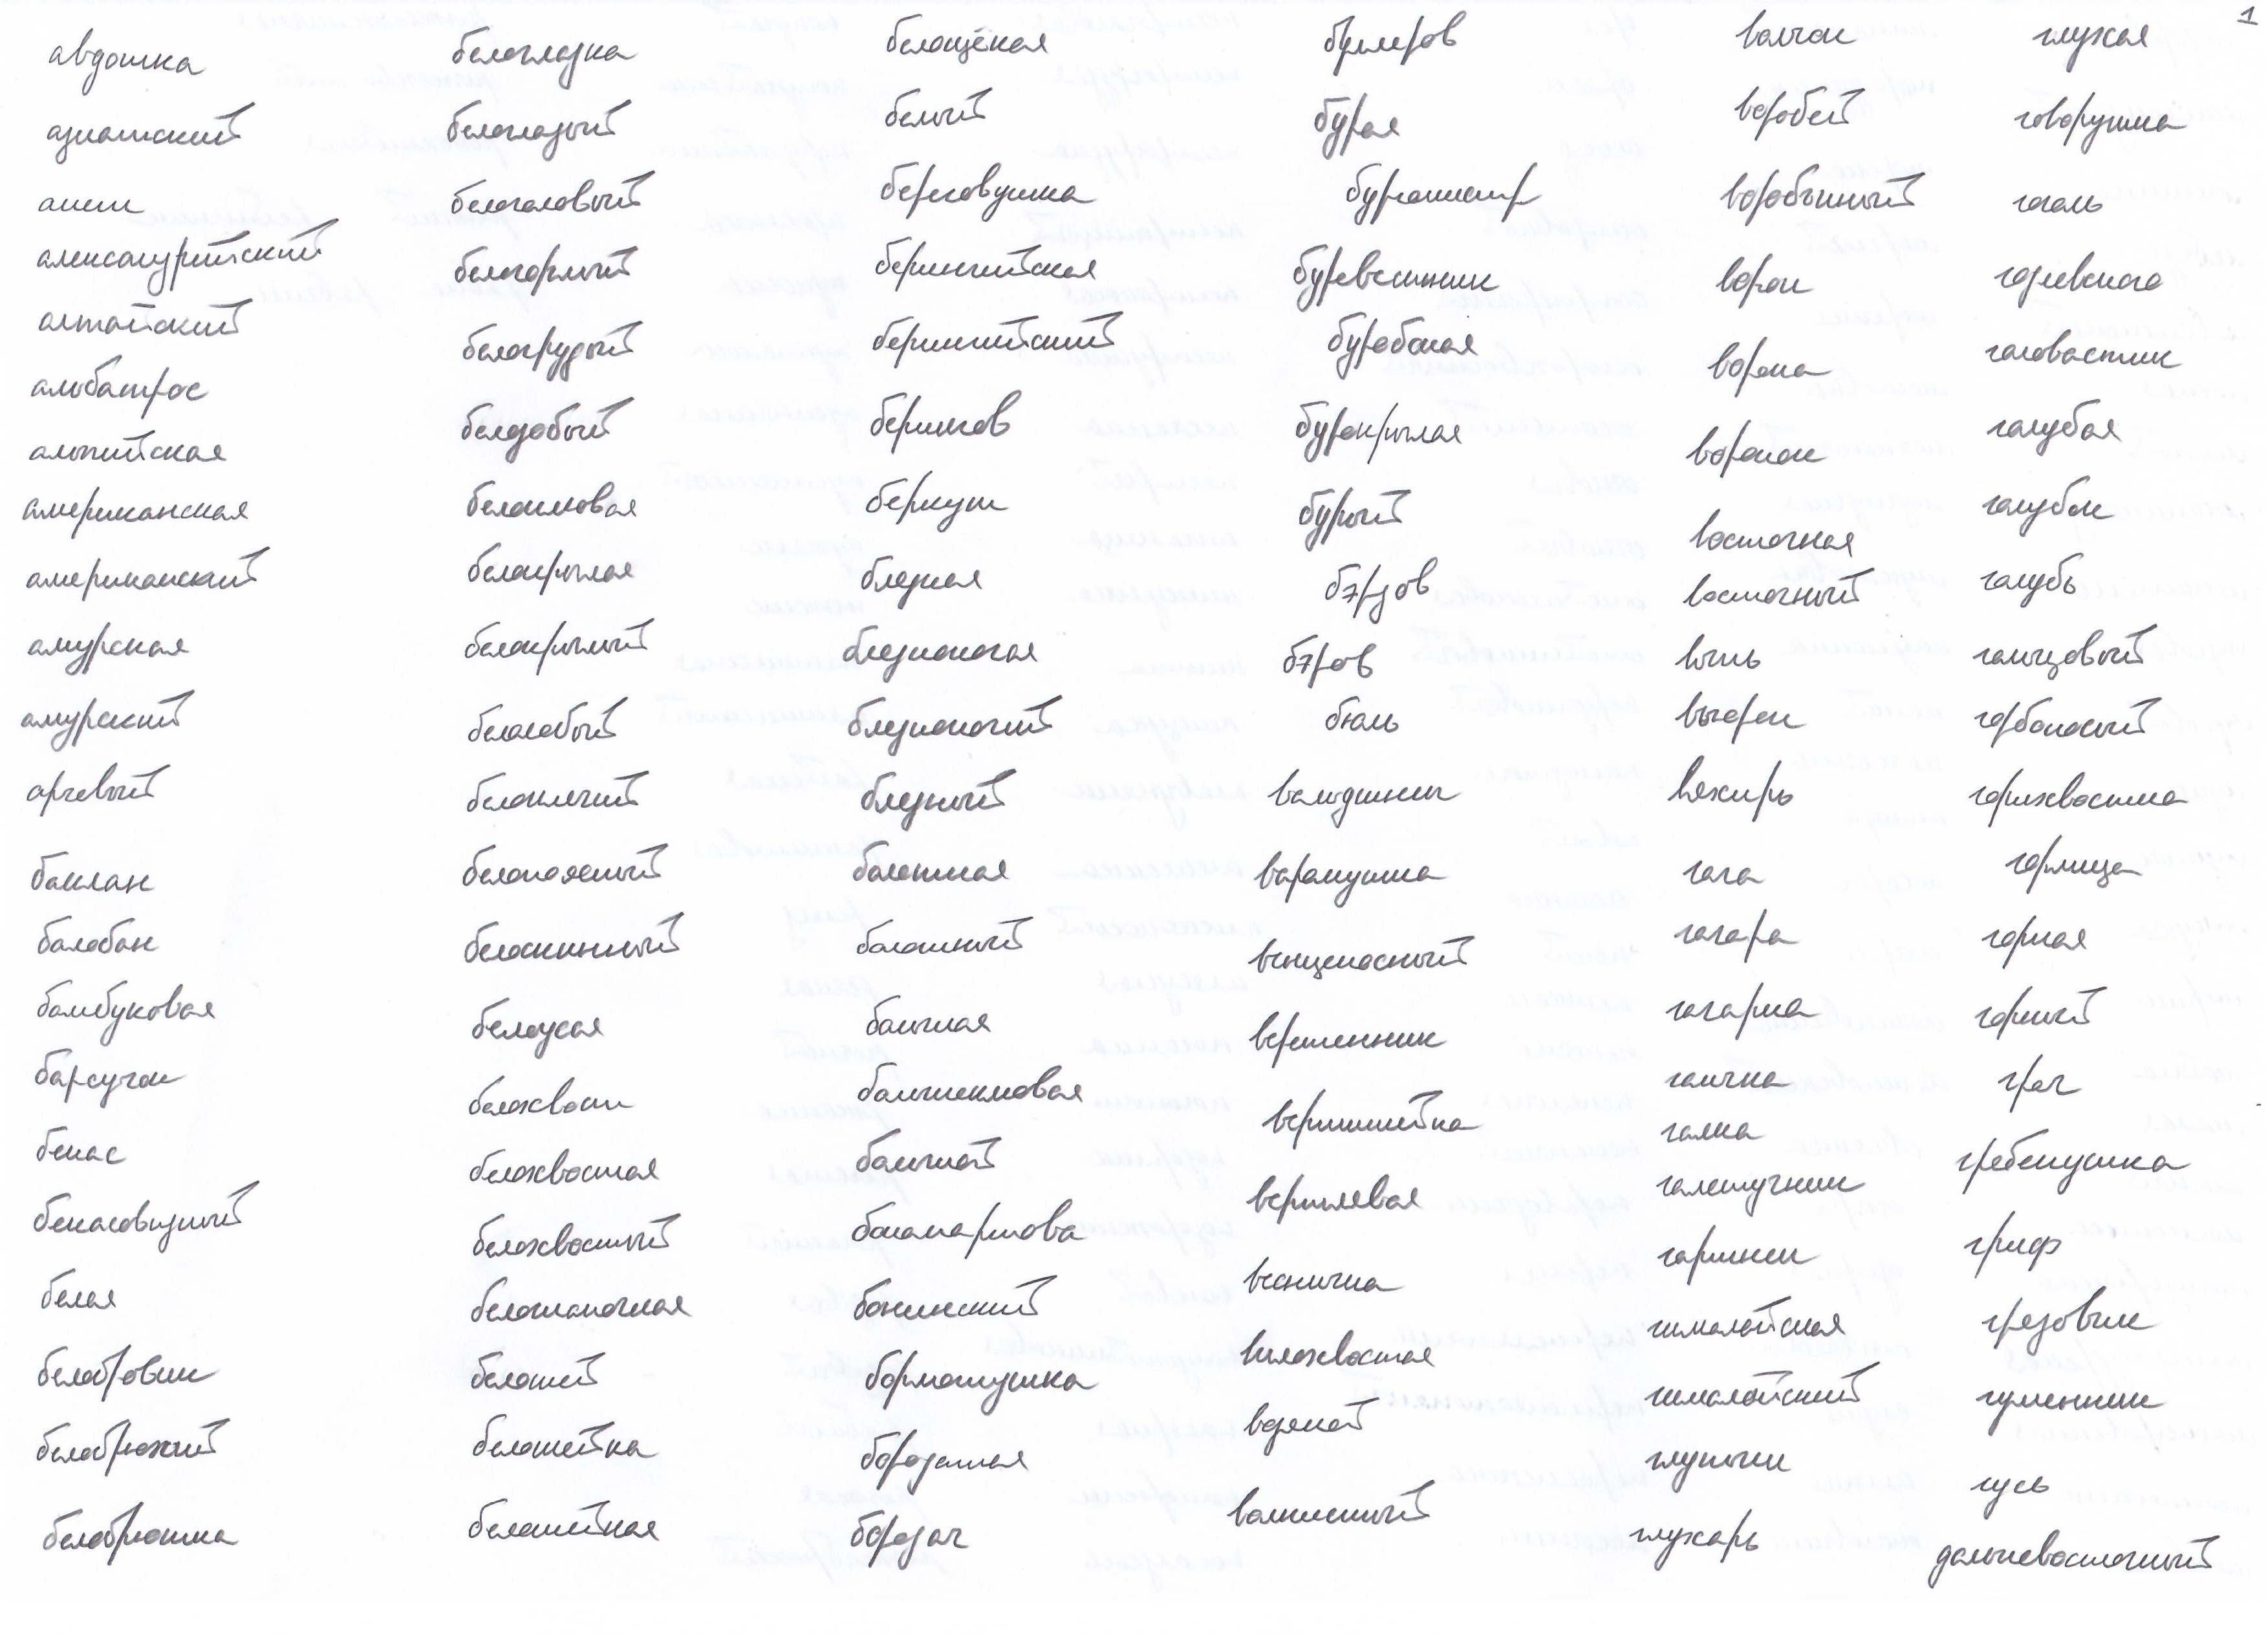 авдошка
азиатский
аист
александрийский
алтайский
альбатрос
альпийская
американская
американский
амурская
амурский
арчевый
баклан
балобан
бамбуковая
барсучок
бекас
бекасовидный
белая
белобровик
белобрюхий
белобрюшка
белоглазка
белоглазый
белоголовый
белогорлый
белогрудый
белозобый
белокрылая
белокрылый
белолобый
белоплечий
белопоясный
белоспинный
белоусая
белохвост
белохвостая
белохвостый
белошапочная
белоший
белошейка
белошейная
белощёкая
белый
береговушка
берингийская
берингийский
берингов
беркут
бледная
бледноногая
бледноногий
бледный
болотная
болотный
большая
большеклювая
большой
бонапартова
бонинский
бормотушка
бородатая
бородач
бурая
бургомистр
буревестник
буробокая
бурокрылая
бурый
бэрдов
бэров
бюль
вальдшнеп
варакушка
венценосный
веретенник
вертишейка
вертлявая
весничка
вилохвостая
водяной
волнистый
волчок
воробей
воробьиный
ворон
ворона
воронок
восточная
восточный
выпь
вяхирь
гага
гагара
гагарка
гаичка
галка
галстучник
гаршнеп
гималайская
гималайский
глупыш
глухарь
1
глухая
говорушка
гоголь
годлевского
головастик
голубая
голубок
голубь
гольцовый
горбоносый
горихвостка
горлица
горная
горный
грач
гребенушка
гриф
грязовик
гуменник
гусь
дальневосточный